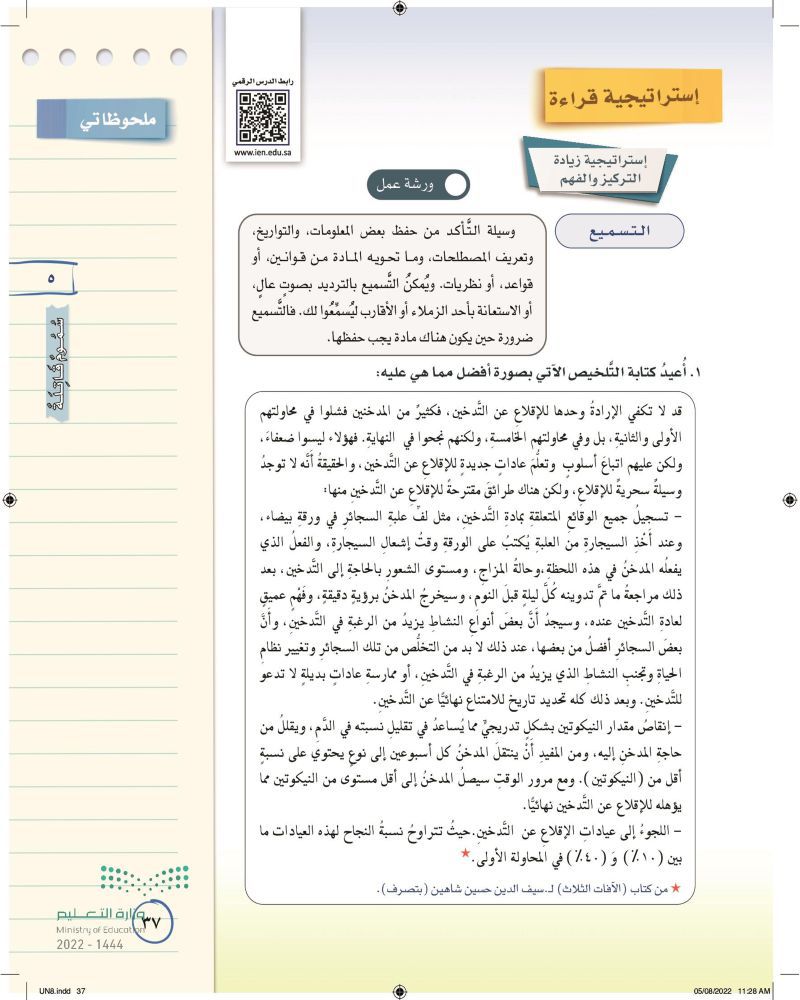 رابط الدرس الرقمي
www.ien.edu.sa
إستراتيجية قراءة
ملحوظاتي
إستراتيجية زيادة
التركيز والفهم
ورشة عمل
التسميع
وسيلة التَّأكد من حفظ بعض المعلومات، والتواريخ،
وتعريف المصطلحات، وما تحويه المادة من قوانين، أو
قواعد، أو نظريات. ويُمكنُ التَّسميع بالترديد بصوتٍ عالٍ،
أو الاستعانة بأحد الزملاء أو الأقارب ليُسمِّعُوا لك. فالتَّسميع
ضرورة حين يكون هناك مادة يجب حفظها.
٥
سُمُومٌ قَاتِلَةٌ
١. أُعيدُ كتابة التَّلخيص الآتي بصورة أفضل مما هي عليه:
قد لا تكفي الإرادةُ وحدها للإقلاع عن التَّدخين، فكثيرٌ من المدخنين فشلوا في محاولتهم
الأولى والثانيةِ، بل وفي محاولتهم الخامسةِ، ولكنهم نجحوا في النهايةِ. فهؤلاء ليسوا ضعفاءَ،
ولكن عليهم اتباعَ أسلوبٍ وتعلُّمَ عاداتٍ جديدةٍ للإقلاع عن التَّدخين، والحقيقةُ أنَّه لا توجدُ
وسيلةٌ سحريةٌ للإقلاعِ، ولكن هناك طرائقَ مقترحةً للإقلاعِ عن التَّدخين منها:
- تسجيلُ جميع الوقائع المتعلقةِ بمادةِ التَّدخين، مثل لفِّ علبةِ السجائرِ في ورقة بيضاء،
وعند أَخْذِ السيجارةِ منَ العلبةِ يُكتبُ على الورقةِ وقتُ إشعالِ السيجارةِ، والفعلُ الذي
يفعلُه المدخنُ في هذه اللحظةِ،وحالةُ المزاجِ، ومستوى الشعورِ بالحاجةِ إلى التَّدخين، بعد
ذلك مراجعةُ ما تمَّ تدوينه كُلَّ ليلةٍ قبلَ النوم، وسيخرجُ المدخنُ برؤيةٍ دقيقةٍ، وفَهْمٍ عميقٍ
لعادةِ التَّدخين عنده، وسيجدُ أنَّ بعضَ أنواعِ النشاطِ يزيدُ من الرغبةِ في التَّدخينِ، وأنَّ
بعضَ السجائرِ أفضلُ من بعضها، عند ذلك لا بد من التخلُّصِ من تلك السجائرِ وتغيير نظامِ
الحياةِ وتجنبِ النشاطِ الذي يزيدُ من الرغبةِ في التَّدخينِ، أو ممارسةِ عاداتٍ بديلةٍ لا تدعو
للتَّدخينِ. وبعد ذلك كله تحديد تاريخ للامتناع نهائيًّا عن التَّدخين.
- إنقاصُ مقدار النيكوتين بشكلٍ تدريجيٍّ مما يُساعدُ في تقليلِ نسبته في الدَّمِ، ويقللُ من
حاجةِ المدخنِ إليه، ومن المفيدِ أنْ ينتقلَ المدخنُ كل أسبوعين إلى نوعٍ يحتوي على نسبةٍ
أقل من (النيكوتين). ومع مرور الوقتِ سيصلُ المدخنُ إلى أقل مستوًى من النيكوتين مما
يؤهله للإقلاعِ عن التَّدخين نهائيًّا.
- اللجوءُ إلى عياداتِ الإقلاعِ عن التَّدخينِ.حيثُ تتراوحُ نسبةُ النجاح لهذه العيادات ما
بين (١٠٪) وَ (٤٠٪) في المحاولة الأولى.★
★ من كتاب (الآفات الثلاث) لـ.سيف الدين حسين شاهين (بتصرف).
وزارة التعليم
Ministry of Education
2022 - 1444
٣٧
UN8.indd 37
05/08/2022 11:28 AM